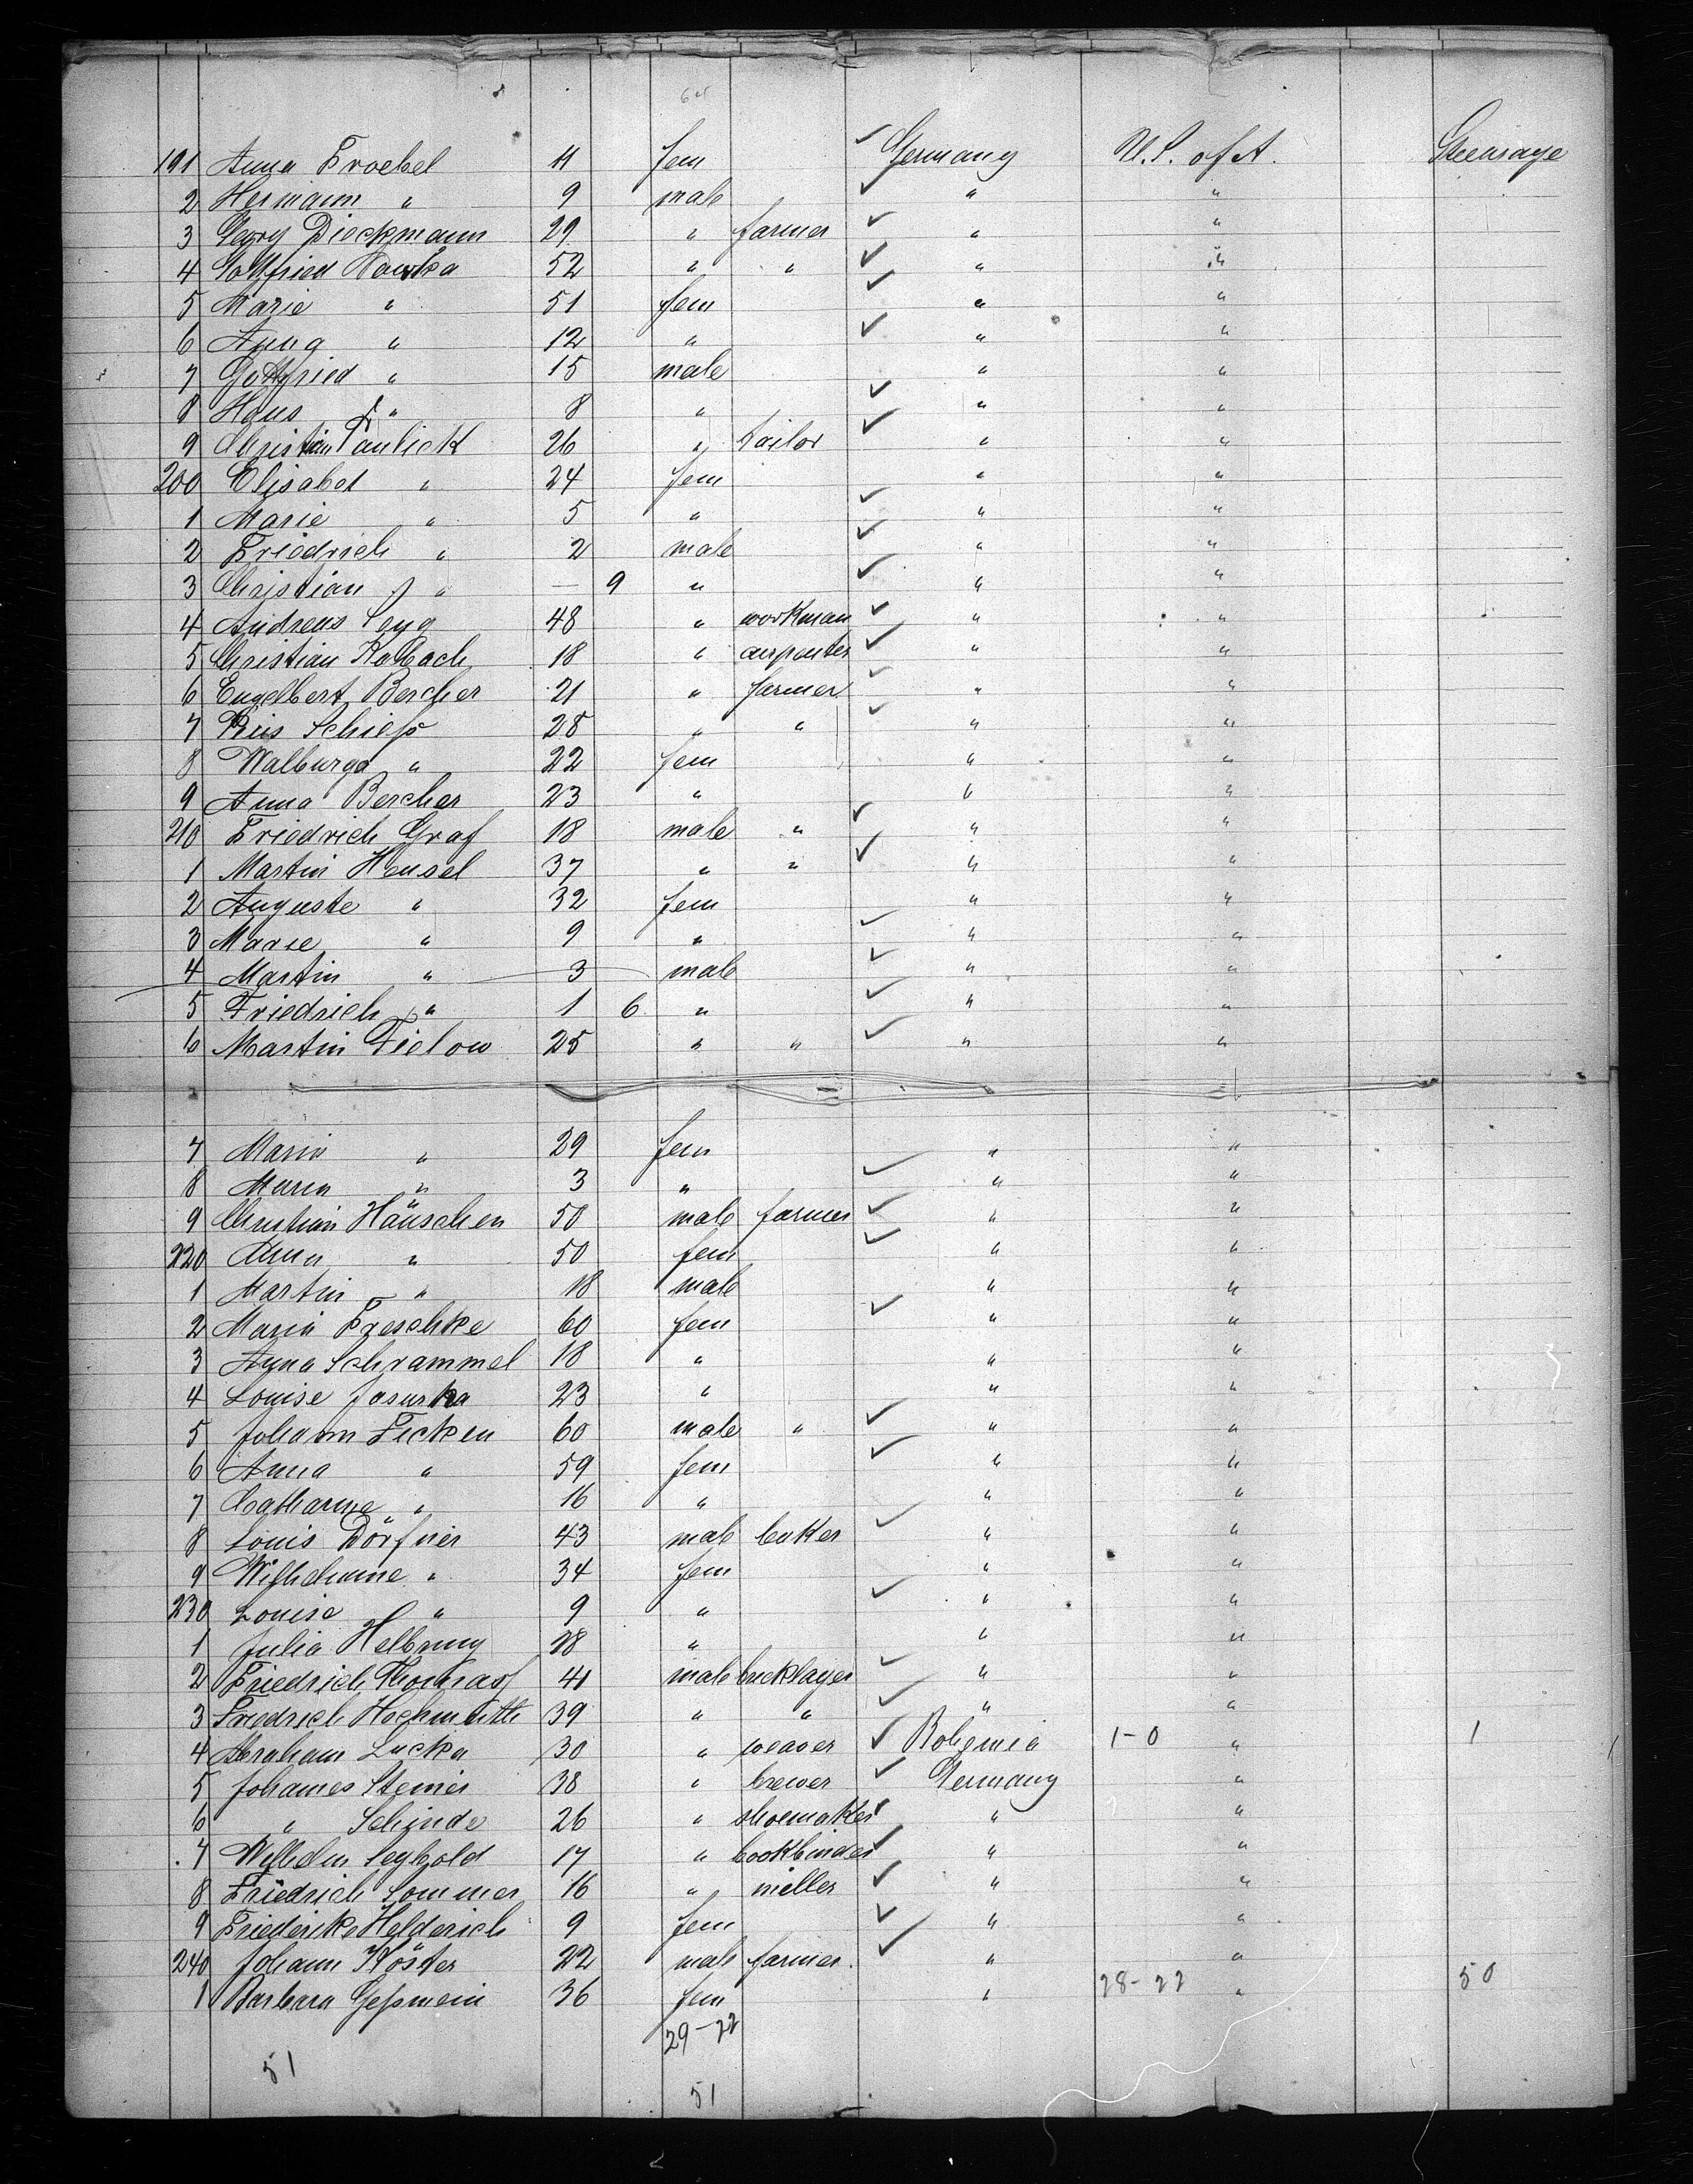 191 Anna Froebel 11 fem Germany U.S. of A. Steerage
2 Hermann " 9 male " "
3 Georg Dieckmann 29 " farmer " "
4 Gottfried Kowska 52 " " " "
5 Marie " 51 fem " "
6 Anna " 12 " " "
7 Gottfried " 15 male " "
8 Hans " 8 " " "
9 Christian Paulick 26 " tailor " "
200 Elisabet " 24 fem " "
1 Marie " 5 " " "
2 Friedrich " 2 male " "
3 Christian " — 9 " " "
4 Andreas 48 " workman " "
5 Christian Robach 18 " carpenter " "
6 Engelbert Bercher 21 " farmer " "
7 Pius Schieß 28 " " " "
8 Walburga " 22 fem " "
9 Anna Bercher 23 " " "
210 Friedrich Graf 18 male " " "
1 Martin Hensel 37 " " " "
2 Auguste " 32 fem " "
3 Marie " 9 " " "
4 Martin " 3 male " "
5 Friedrich " 1 6 " " "
6 Martin Tielow 25 " " " "
7 Maria " 29 fem " "
8 Maria " 3 " " "
9 Christian Häuschen 50 male farmer " "
220 Anna " 50 fem " "
1 Martin " 18 male " "
2 Maria Freschke 60 fem " "
3 Anna Schrammel 18 " " "
4 Louise 23 " " "
5 Johann Ficken 60 male " " "
6 Anna " 59 fem " "
7 Catharine " 16 " " "
8 Louis Dörfner 43 male baker " "
9 Wilhelmine " 34 fem " "
230 Louise " 9 " " "
1 Julia Helbrung 28 " " "
2 Friedrich Thomas 41 male bricklayer " "
3 Friedrich Hochmuth 39 " " " "
4 Abraham Lucka 30 " weaver Bohemia 1-0 " 1
5 Johannes Steiner 38 " brewer Germany "
6 " Schinde 26 " shoemaker " "
7 Wilhelm Seybold 17 " bookbinder " "
8 Friedrich Sommer 16 " miller " "
9 Friederike Helderich 9 fem " "
240 Johann Köster 22 male farmer " "
1 Barbara Geßmein 36 fem " 28-22 " 50
29-22
51
51